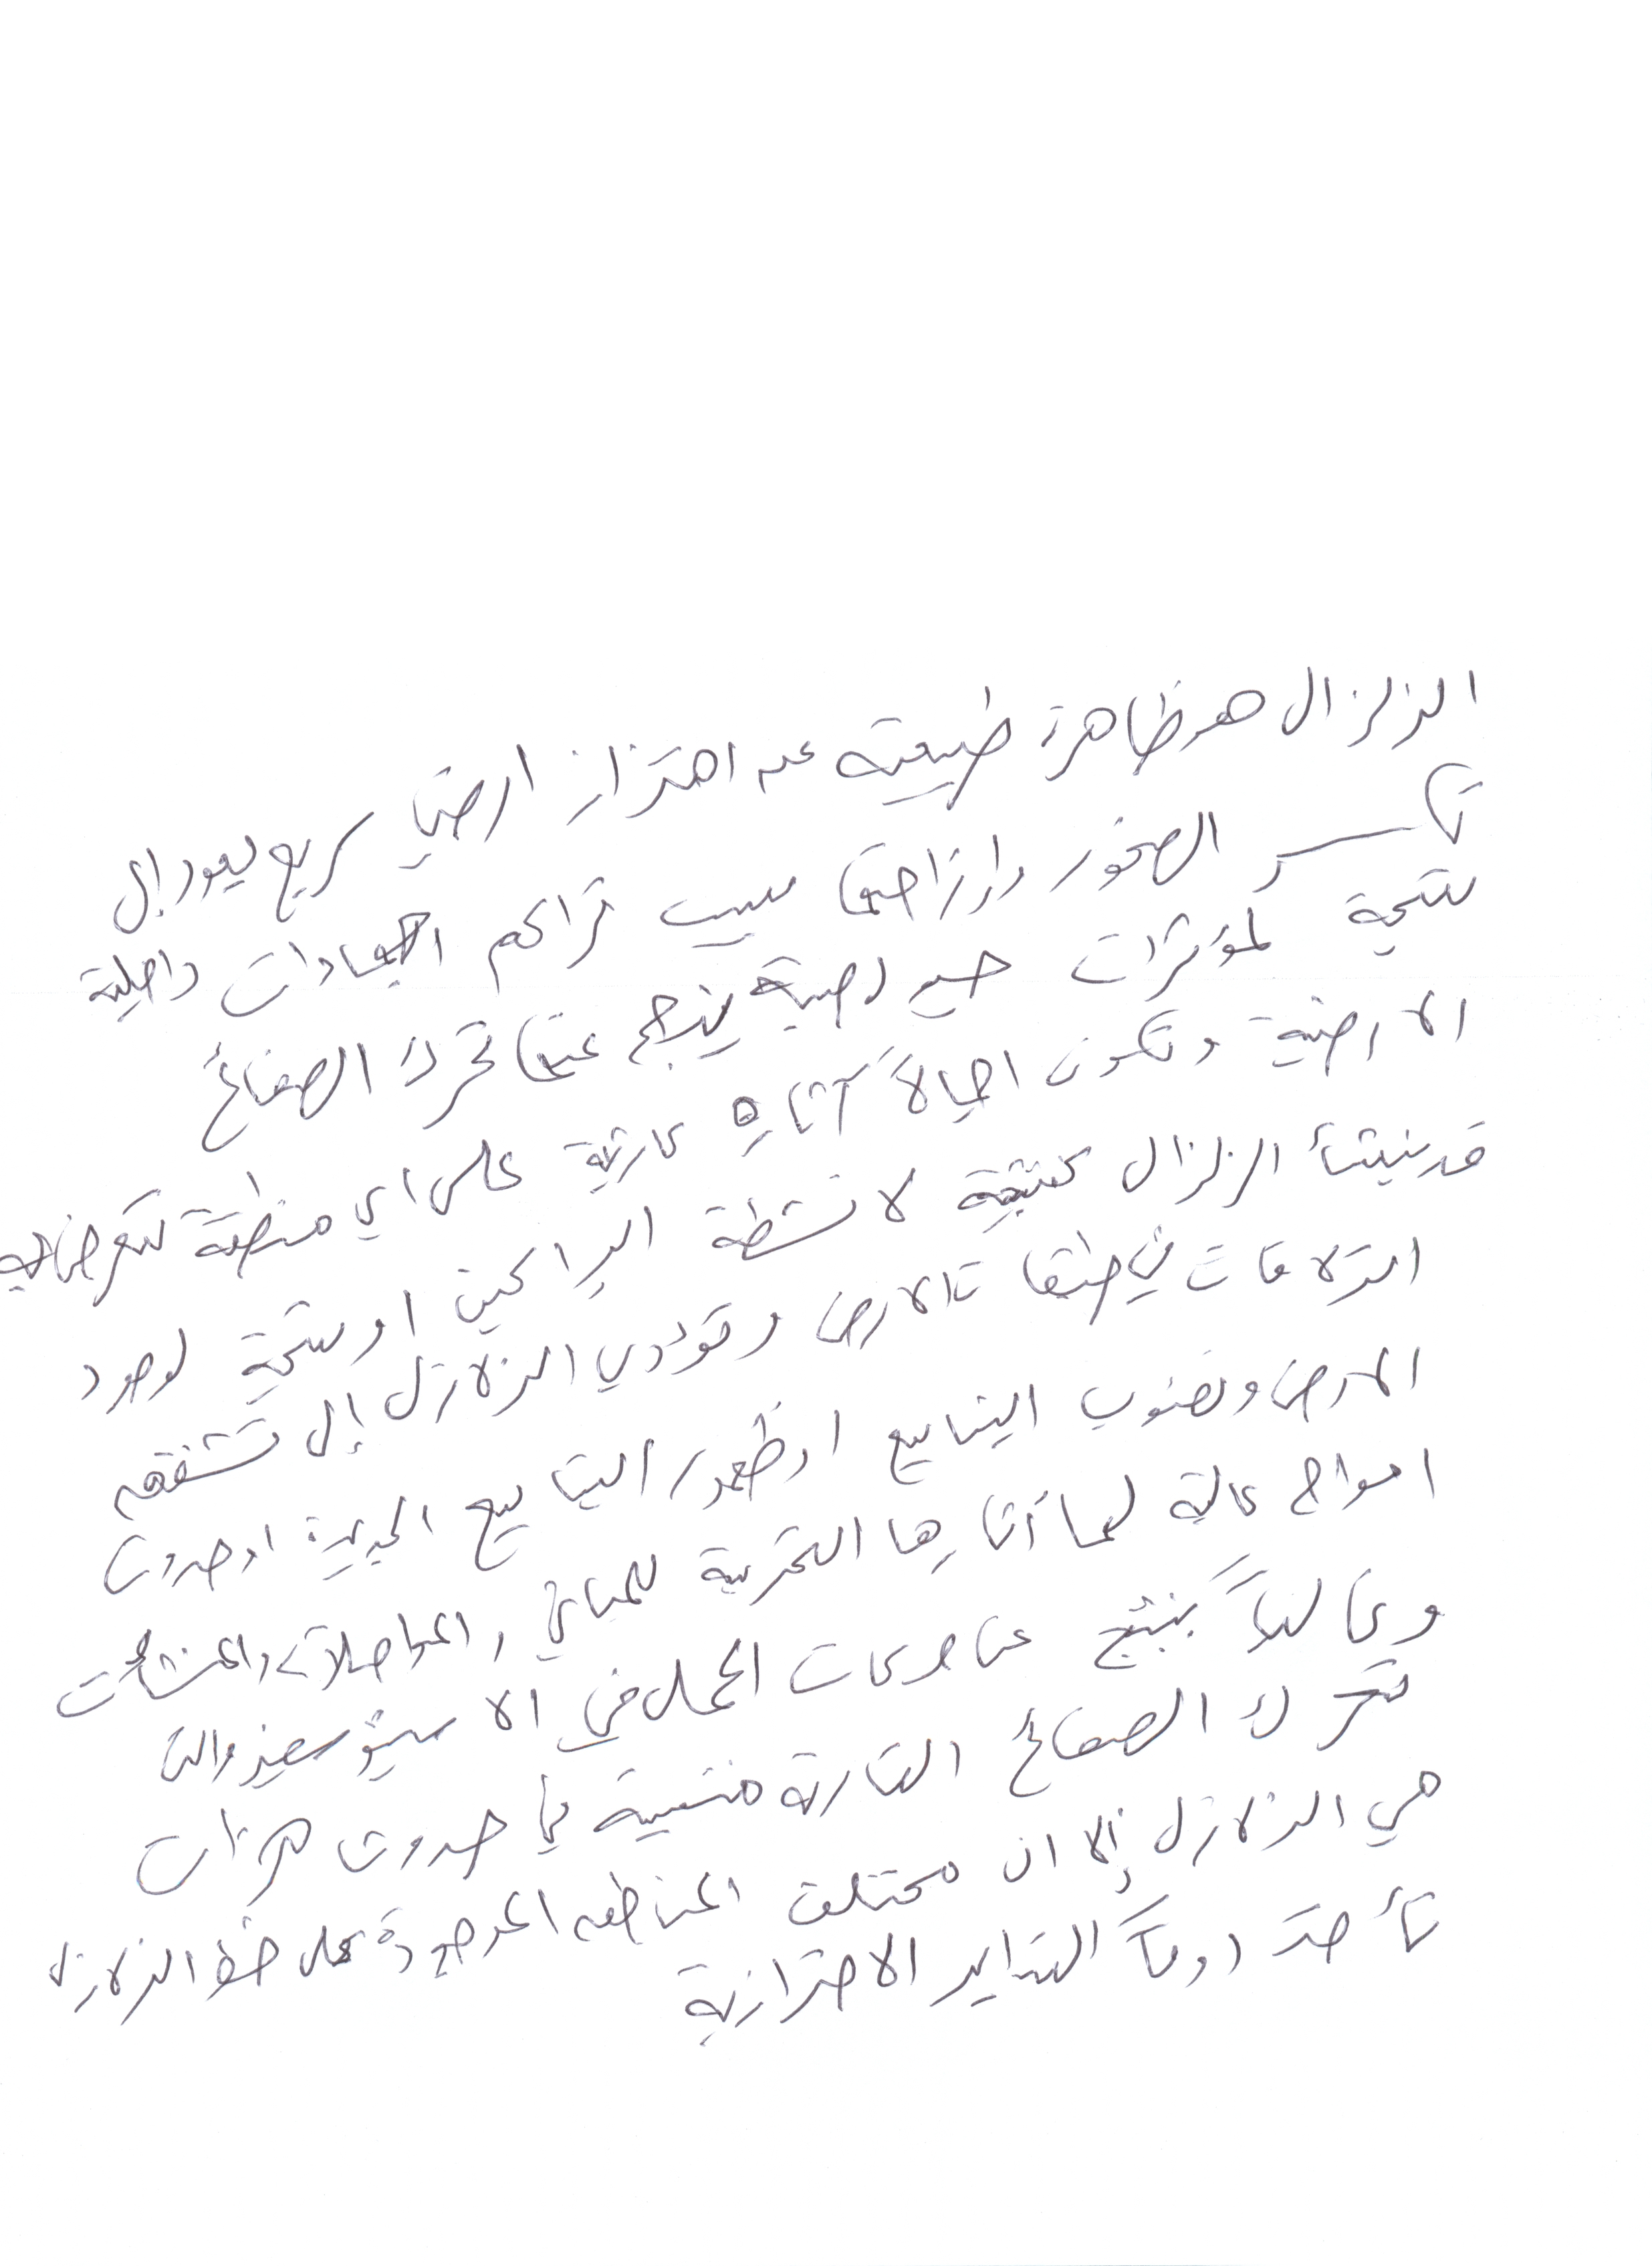 الزلزال هو ظاهرة طبيعية عن اهتزاز ارضي سريع يعود إلى
تكسر الصخور وازاحتها بسبب تراكم اجهادات داخلية
نتيجة لمؤثرات جيولوجية ينجم عنها تحرك الصفائح
الارضية وتكون احيانا آثاره كارثية على اي منطقة تتعرض له
قد ينشأ الزلزال كنتيجة لانشطة البراكين او نتيجة لوجود
انزلاقات في طبقات الارض وتؤدي الزلازل إلى تشقق
الارض ونضوب الينابيع او ظهور الينابيع الجديدة او حدوث
امواج عالية لها آثارها التخريبية للمباني والمواصلات والمنشآت
وغالباً ينتج عن الحمل في الاسينوسفير والتي
تحرك الصفائح القارية متسببة في حدوث هزات
هي الزلازل إلا ان مختلف المناطق الموجودة على خط الزلازل
تأخذ دوماً التدابير الاحترازية